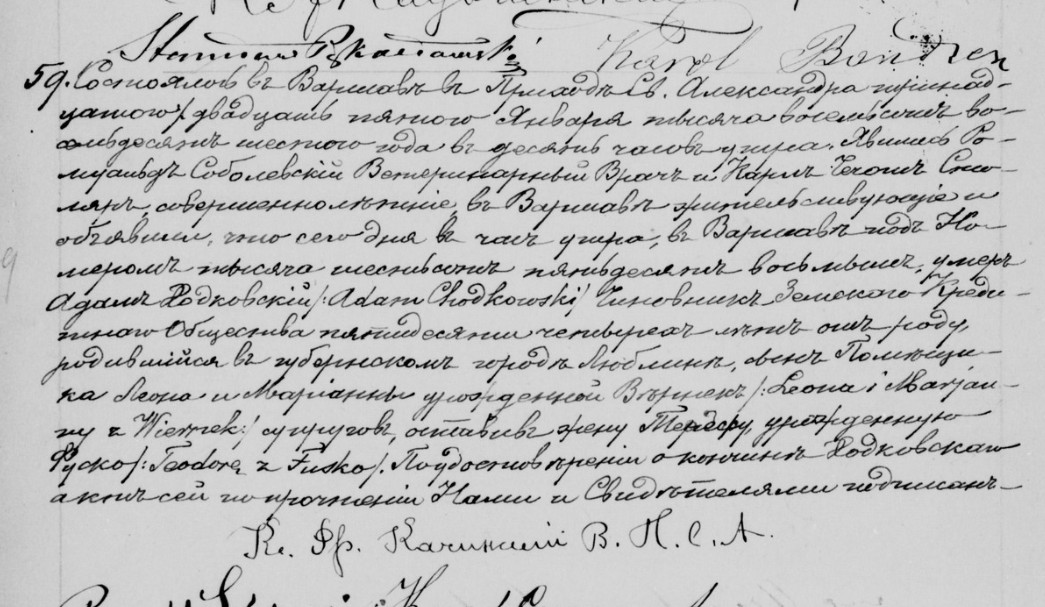 Karol
59. Состоялось въ Варшавѣ въ Приходѣ Св. Александра тринад-
цатаго / двадцать пятаго Января тысяча восемьсотъ во-
семьдесятъ шестого года въ десять часовъ утра. Явились Ро-
муальдъ Соболевскій Ветеринарный Врачъ и Карлъ Сто-
ляръ, совершеннолѣтніе, въ Варшавѣ жительствующіе и
объявили, что сего дня въ часъ утра, въ Варшавѣ подъ Но-
меромъ тысяча шестьсотъ пятьдесятъ восьмымъ, умеръ
Адамъ Ходковскій /: Adam Chodkowski / Чиновникъ Земского Креди-
тного Общества пятидесяти четырехъ лѣтъ отъ роду,
родившійся въ губернскомъ городѣ Люблинѣ, сынъ Помѣщи-
ка Леона и Маріанны урожденной /: Leona i Marjan-
ny z :/ супруговъ, оставивъ жену урожденную
Фуско /: Teodorę z Fusko /. По удостовѣреніи о кончинѣ Ходковскаго
актъ сей по прочтеніи Нами и Свидѣтелями подписанъ
Кс. Фр. В. П. С. А.